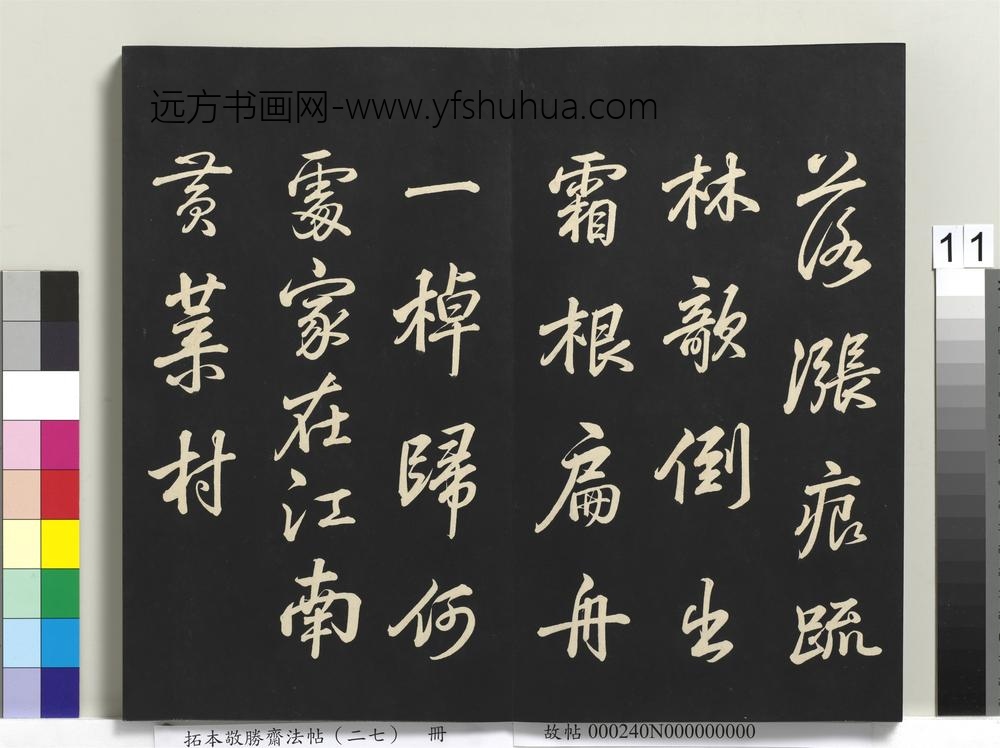 远方书画网-www.yfshuhua.com
落漲痕疏
林欹倒出
霜根扁舟
一棹歸何
處家在江南
黄葉村
11
拓本敬勝齋法帖（二七） 冊
故帖 000240N000000000